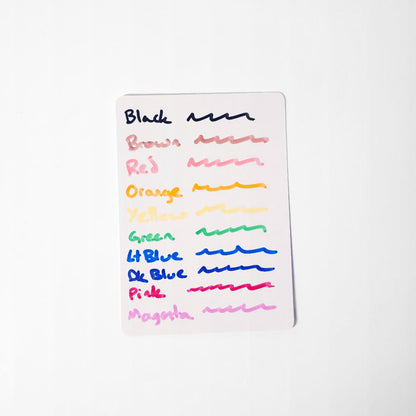 Black
Brown
Red
Orange
Yellow
Green
Lt Blue
Dk Blue
Pink
Magenta